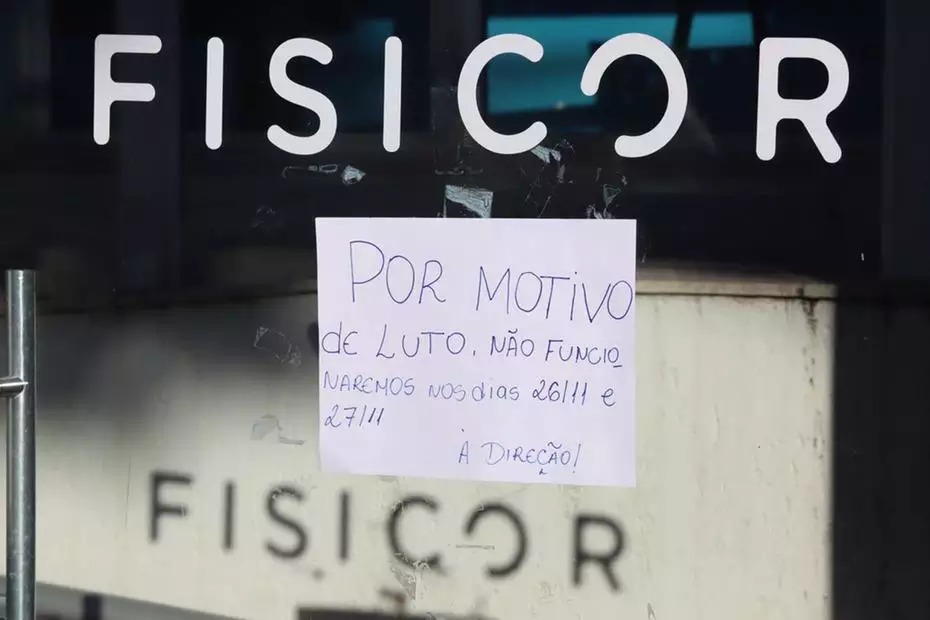 FISICOR
POR MOTIVO
de LUTO, NÃO FUNCIO
NAREMOS NOS dias 26/11 e
27/11
A DIREÇÃO!
FISICOR